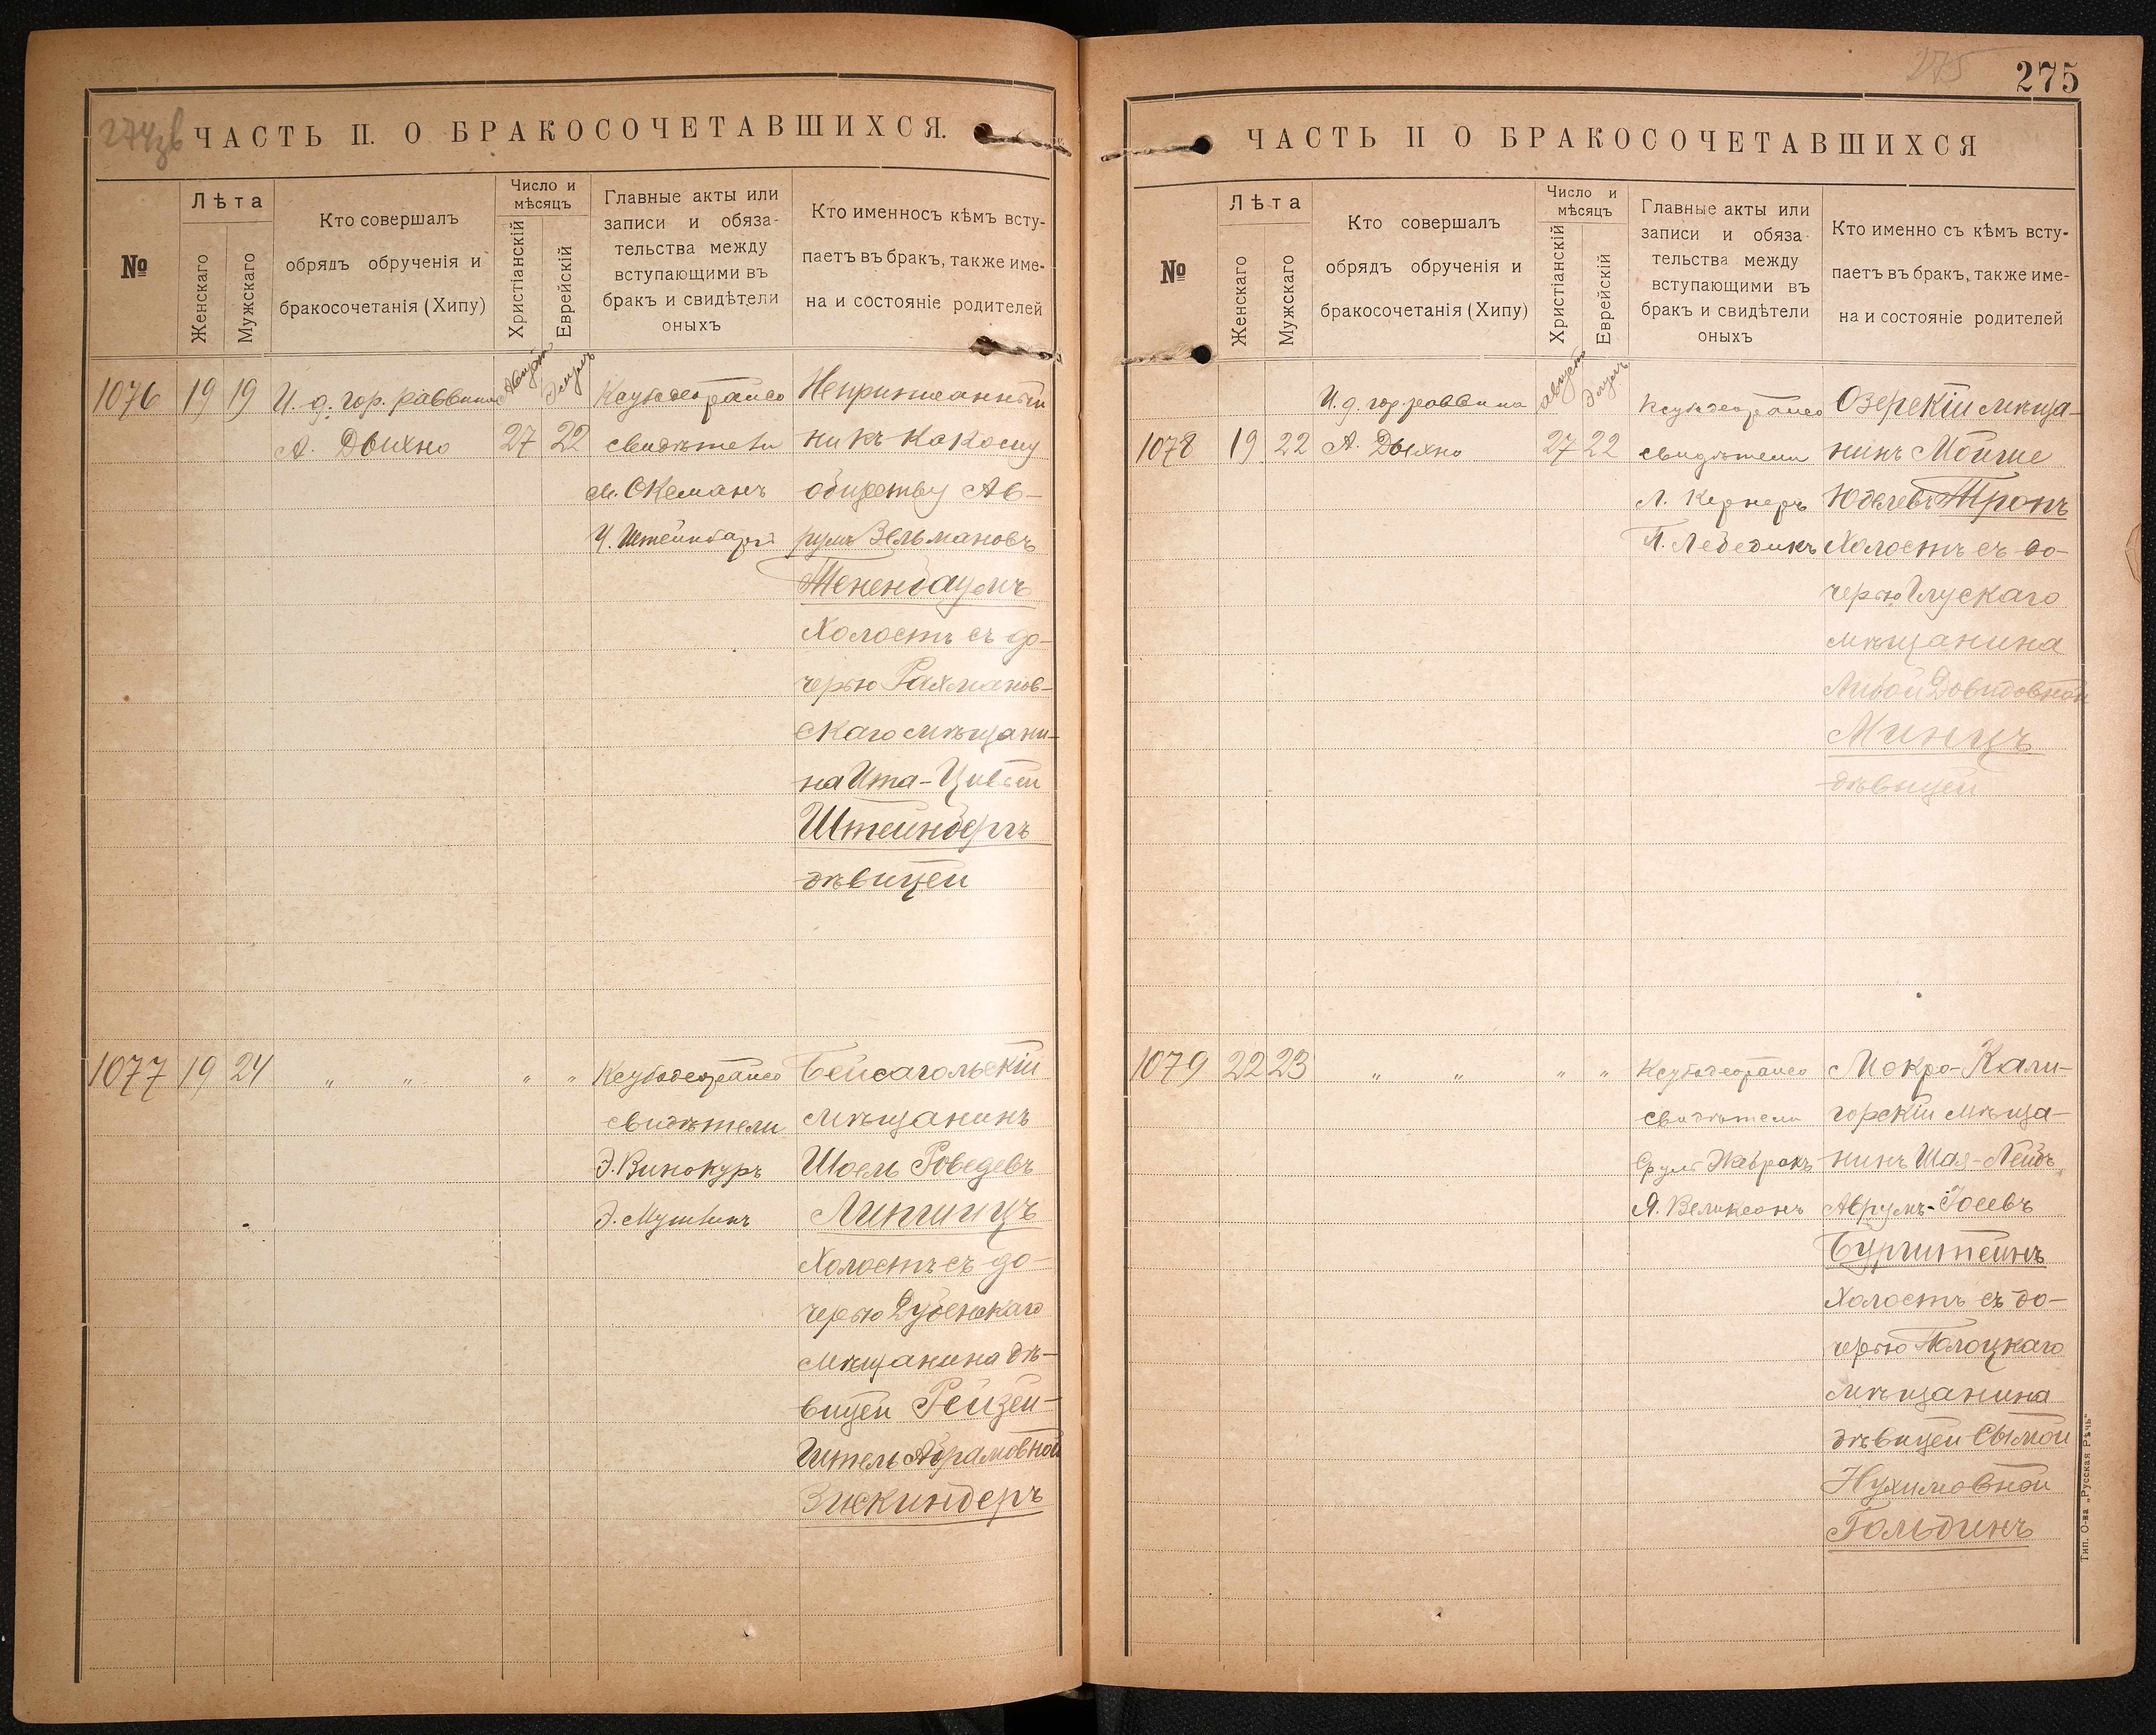 274зв
ЧАСТЬ II. О БРАКОСОЧЕТАВШИХСЯ.
№
Лѣта
Женскаго
Мужскаго
Кто совершалъ
обрядъ обрученія и
бракосочетанія (Хипу)
Число и
мѣсяцъ
Христіанскій
Еврейскій
Главные акты или
записи и обяза-
тельства между
вступающими въ
бракъ и свидѣтели
оныхъ
Кто именносъ кѣмъ всту-
паетъ въ бракъ, также име-
на и состояніе родителей
1076 19 19
И. д. гор. раввина
А. Дыхно
Августъ
Элулъ
27 22
свидѣтели
М. Оксманъ
Неприписанный
ни къ какому
обществу Ав-
румъ Зельмановъ
Тененбаумъ
Холостъ съ до-
черью Рахманов-
скаго мѣщани-
на Ита-Цивьей
Штейнбергъ
дѣвицей
1077 19 24 " " " "
свидѣтели
Э. Винокуръ
Бейсагольскій
мѣщанинъ
Шоель
Липшицъ
Холостъ съ до-
черью Дубенскаго
мѣщанина дѣ-
вицей Рейзей-
Итель Абрамовной
Зискиндеръ
275
275
ЧАСТЬ II О БРАКОСОЧЕТАВШИХСЯ
№
Лѣта
Женскаго
Мужскаго
Кто совершалъ
обрядъ обрученія и
бракосочетанія (Хипу)
Число и
мѣсяцъ
Христіанскій
Еврейскій
Главные акты или
записи и обяза-
тельства между
вступающими въ
бракъ и свидѣтели
оныхъ
Кто именно съ кѣмъ всту-
паетъ въ бракъ, также име-
на и состояніе родителей
1078 19 22
И. д. гор. раввина
А. Дыхно
Августъ
Элулъ
27 22
свидѣтели
Л. Кернеръ
П. Лебедикъ
Озерскій мѣща-
нинъ Мойше
Юделевъ Тропъ
Холостъ съ до-
черью Глускаго
мѣщанина
Либой Довидовной
Минцъ
дѣвицей
1079 22 23 " " " "
свидѣтели
Мокро-Кали-
горскій мѣща-
нинъ Шая-Лейбъ
Аврумъ-Іосевъ
Бурштейнъ
Холостъ съ до-
черью Полоцкаго
мѣщанина
дѣвицей Сымой
Нухимовной
Гольдинъ
Тип. О-ва „Русская Рѣчь"